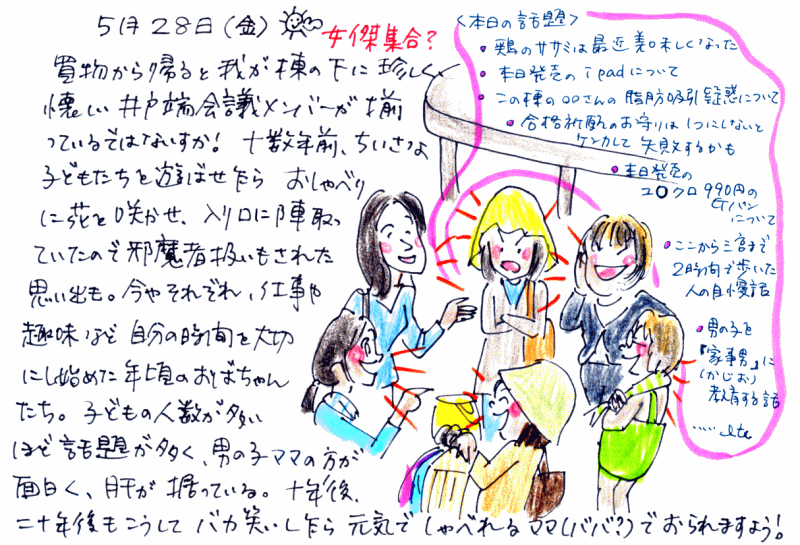 5月28日(金)
女傑集合?
買物から帰ると我が棟の下に珍しく
懐しい井戸端会議メンバーが揃
っているではないすか! 十数年前、ちいさな
子どもたちを遊ばせながら おしゃべり
に花を咲かせ、入り口に陣取っ
ていたので邪魔者扱いもされた
思い出も。今やそれぞれ、仕事や
趣味など 自分の時間を大切
にし始めた年頃のおばちゃん
たち。子どもの人数が多い
ほど話題が多く、男の子ママの方が
面白く、肝が据っている。十年後、
二十年後もこうして バカ笑いしながら 元気で しゃべれるママ(ババ?)でおられますよう!
<本日の話題>
・鶏のササミは最近美味しくなった
・本日発売の ipadについて
・この棟の○○さんの 脂肪吸引疑惑について
・合格祈願のお守りは1つにしないと
ケンカして 失敗するかも
・本日発売の
ユ○クロ990円の
Gパン
について
・ここから三宮まで
2時間で歩いた
人の自慢話
・男の子を
『家事男』に
(かじお)
教育する話
..... etc